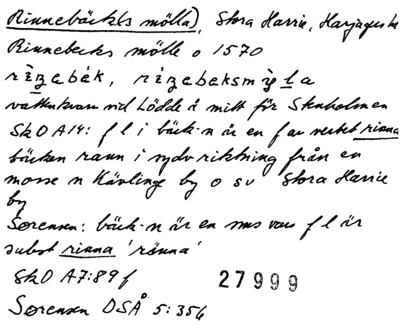 Rinnebäck(s mölla), Stora Harrie, Harjagers hd
Rinnebecks mölle o 1570
rìṇebék, rìṇebeksmø̀la
vattenkvarn vid Lödde å mitt för Stenholmen
SkO A14: f l i bäck-n är en f av verbet rinna
bäcken rann i sydv riktning från en
mosse n Kävlinge by o sv Stora Harrie
by
Sørensen: bäck-n är en sms vars f l är
subst rinna 'ränna'
SkO A7:89 f
27999
Sørensen DSÅ 5:354